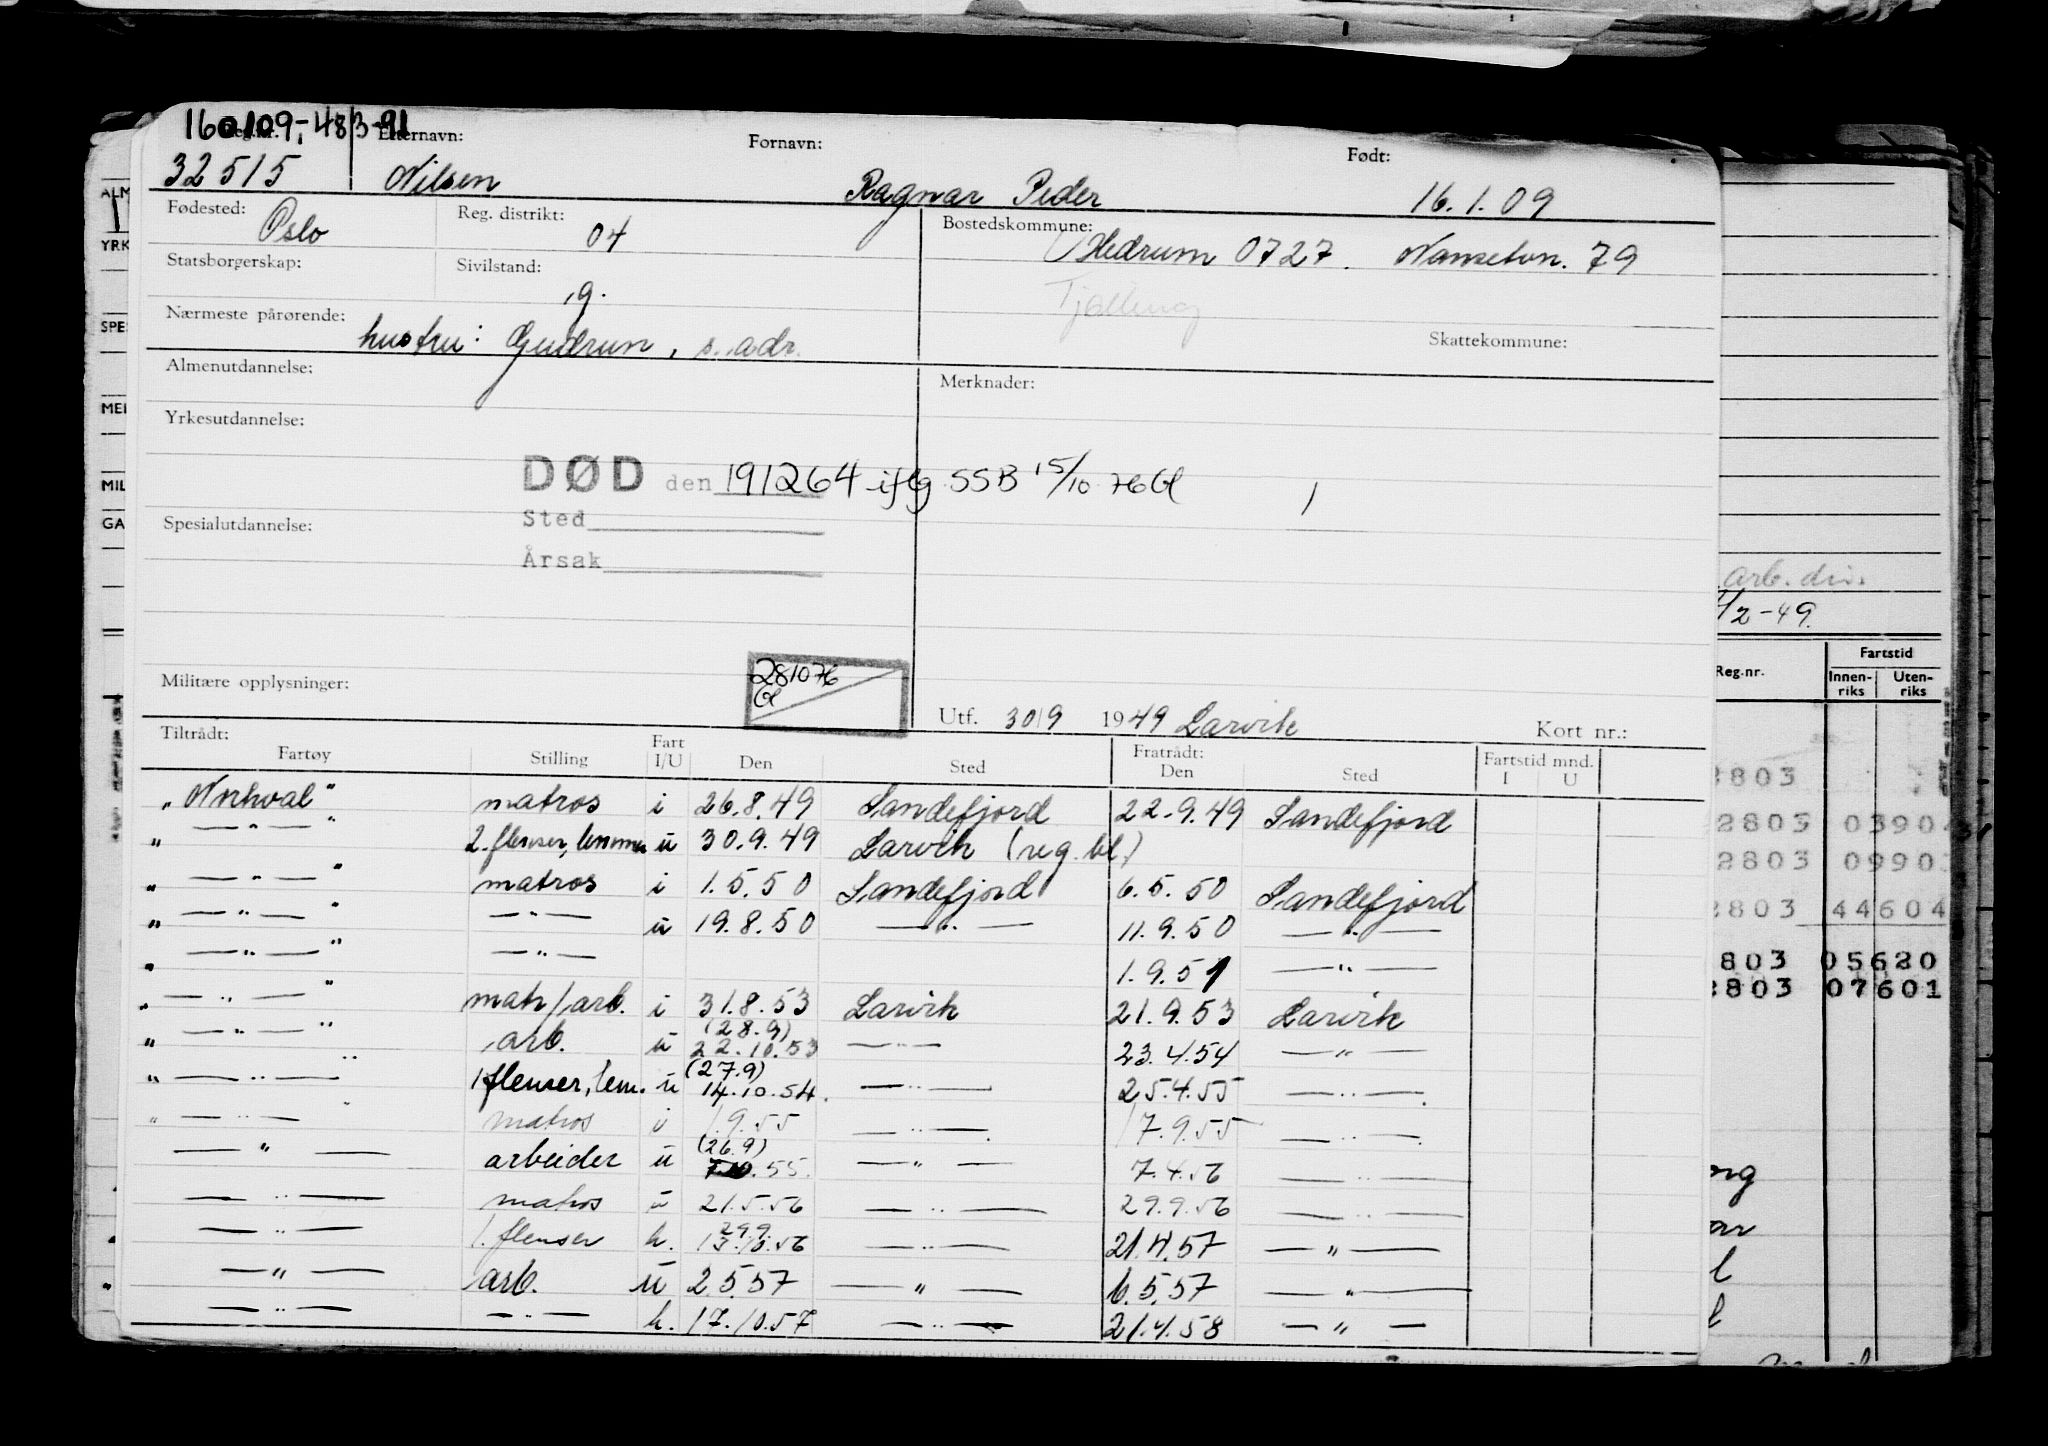 160109-483-91
Reg.nr. Etternavn: Fornavn: Født:
32515 Nilsen Ragnar Peder 16.1.09
Fødested: Oslo Reg. distrikt: 04 Bostedskommune: Hedrum 0727. Nansetvn. 79
Statsborgerskap: Sivilstand: g. Tjølling
Nærmeste pårørende: hustru: Gudrun, s. adr. Skattekommune:
Almenutdannelse: Merknader:
Yrkesutdannelse:
DØD den 191264 iflg SSB 15/10 76 Gl
Sted
Spesialutdannelse:
Årsak
281076
Gl
Militære opplysninger:
Utf. 30/9 1949 Larvik Kort nr.:
Tiltrådt: Fartøy Stilling Fart I/U Den Sted Fratrådt: Den Sted Fartstid mnd. I U
"Norhval" matros i 26.8.49 Sandefjord 22.9.49 Sandefjord
" — " — " 2. flenser, lemmer u 30.9.49 Larvik (reg. bl.)
" — " — " matros i 1.5.50 Sandefjord 6.5.50 Sandefjord
" — " — " — " — u 19.8.50 — " — 11.9.50 — " —
" — " — " — " — 1.9.51 — " —
" — " — " matr/arb. i 31.8.53 Larvik 21.9.53 Larvik
" — " — " arb. u (28.9) 22.10.53 — " — 23.4.54 — " —
" — " — " 1 flenser, lem. u (27.9) 14.10.54. — " — 25.4.55 — " —
" — " — " matros i 1.9.55 — " — 17.9.55 — " —
— " — arbeider u (26.9) 7.10.55. — " — 7.4.56 — " —
— " — matros u 21.5.56 — " — 29.9.56 — " —
— " — 1. flenser h. 29.9 13.10.56 — " — 21.4.57 — " —
— " — arb. u 2.5.57 — " — 6.5.57 — " —
— " — — " — h. 17.10.57 — " — 21.4.58 — " —
ALM
YRK
SPE
MEI
MIL
GA
arb. div.
/2-49.
Reg.nr. Fartstid
Innen-riks Uten-riks
2803
2803 0390
2803 0990
2803 44604
803 05620
2803 07601